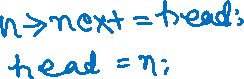 n->next = head;
head = n;